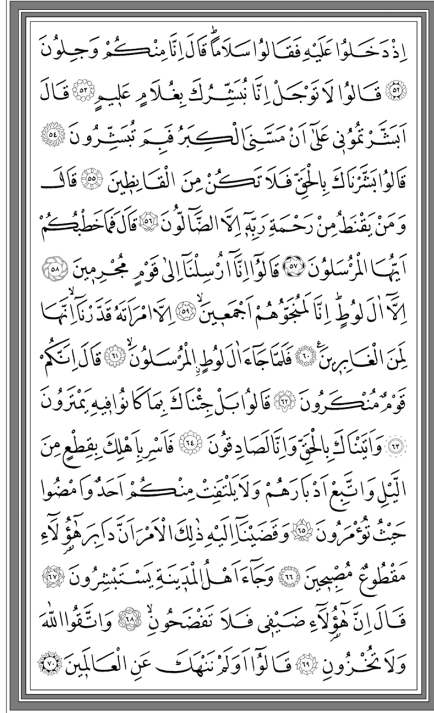 اِذْ دَخَلُوا عَلَيْهِ فَقَالُوا سَلَامًاۜ قَالَ اِنَّا مِنْكُمْ وَجِلُونَ
﴿٥٢﴾ قَالُوا لَا تَوْجَلْ اِنَّا نُبَشِّرُكَ بِغُلَامٍ عَلِيمٍ ﴿٥٣﴾ قَالَ
اَبَشَّرْتُمُونِي عَلٰٓى اَنْ مَسَّنِيَ الْكِبَرُ فَبِمَ تُبَشِّرُونَ ﴿٥٤﴾
قَالُوا بَشَّرْنَاكَ بِالْحَقِّ فَلَا تَكُنْ مِنَ الْقَانِطِينَ ﴿٥٥﴾ قَالَ
وَمَنْ يَقْنَطُ مِنْ رَحْمَةِ رَبِّهٖٓ اِلَّا الضَّٓالُّونَ ﴿٥٦﴾ قَالَ فَمَا خَطْبُكُمْ
اَيُّهَا الْمُرْسَلُونَ ﴿٥٧﴾ قَالُٓوا اِنَّٓا اُرْسِلْنَٓا اِلٰى قَوْمٍ مُجْرِمِينَ ﴿٥٨﴾
اِلَّٓا اٰلَ لُوطٍۜ اِنَّا لَمُنَجُّوهُمْ اَجْمَعِينَۙ ﴿٥٩﴾ اِلَّا امْرَاَتَهُ قَدَّرْنَٓاۙ اِنَّهَا
لَمِنَ الْغَابِرِينَ۟ ﴿٦٠﴾ فَلَمَّا جَٓاءَ اٰلَ لُوطٍۨ الْمُرْسَلُونَۙ ﴿٦١﴾ قَالَ اِنَّكُمْ
قَوْمٌ مُنْكَرُونَ ﴿٦٢﴾ قَالُوا بَلْ جِئْنَاكَ بِمَا كَانُوا فِيهِ يَمْتَرُونَ
﴿٦٣﴾ وَاَتَيْنَاكَ بِالْحَقِّ وَاِنَّا لَصَادِقُونَ ﴿٦٤﴾ فَاَسْرِ بِاَهْلِكَ بِقِطْعٍ مِنَ
الَّيْلِ وَاتَّبِعْ اَدْبَارَهُمْ وَلَا يَلْتَفِتْ مِنْكُمْ اَحَدٌ وَامْضُوا
حَيْثُ تُؤْمَرُونَ ﴿٦٥﴾ وَقَضَيْنَٓا اِلَيْهِ ذٰلِكَ الْاَمْرَ اَنَّ دَابِرَ هٰٓؤُ۬لَٓاءِ
مَقْطُوعٌ مُصْبِحِينَ ﴿٦٦﴾ وَجَٓاءَ اَهْلُ الْمَدِينَةِ يَسْتَبْشِرُونَ ﴿٦٧﴾
قَالَ اِنَّ هٰٓؤُ۬لَٓاءِ ضَيْفِي فَلَا تَفْضَحُونِۙ ﴿٦٨﴾ وَاتَّقُوا اللّٰهَ
وَلَا تُخْزُونِ ﴿٦٩﴾ قَالُٓوا اَوَلَمْ نَنْهَكَ عَنِ الْعَالَمِينَ ﴿٧٠﴾